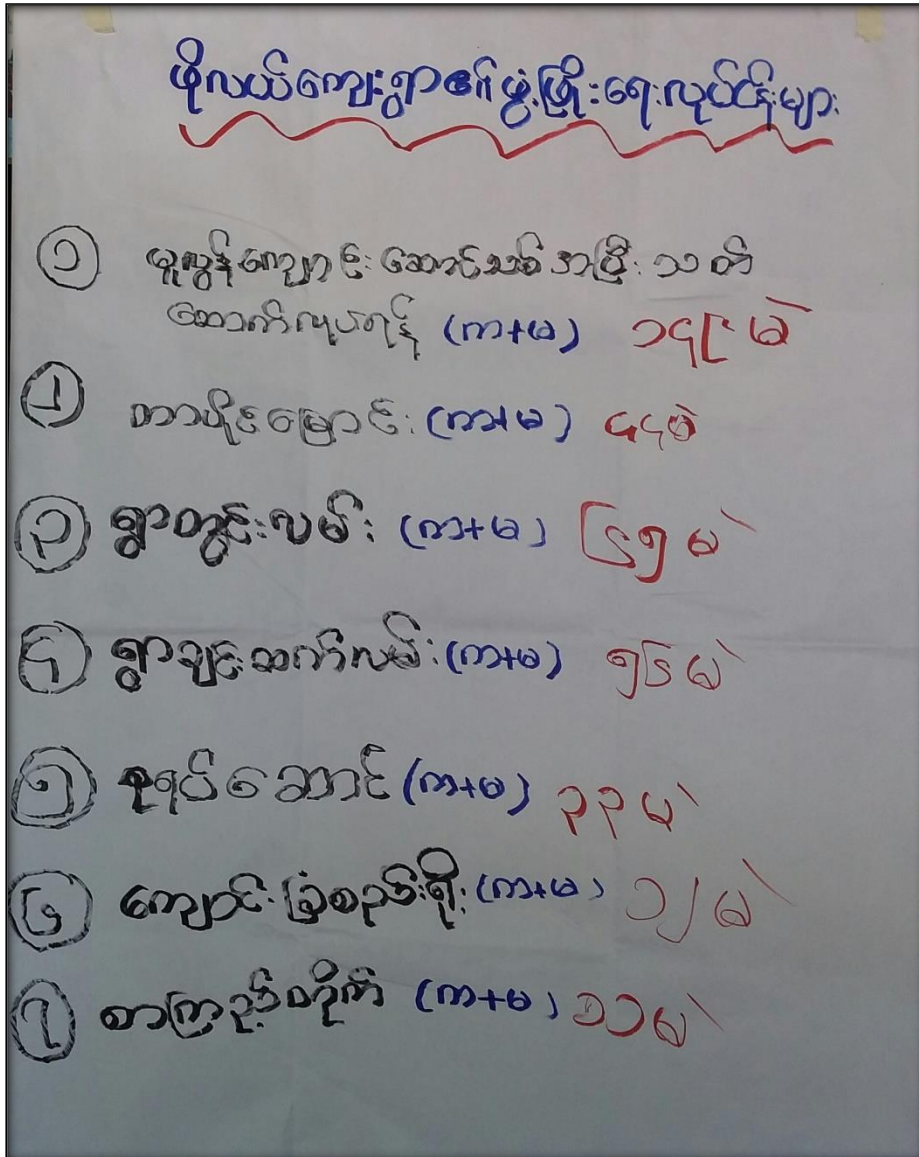 ဖိုလယ်ကျေးရွာ၏ဖွံ့ဖြိုးရေးလုပ်ငန်းများ
၁ မူလွန်ကျောင်းဆောင်သစ်အပြီးသတ်
ဆောက်လုပ်ရန် (ကာ+မ) ၁၄၉ မဲ
၂ တာပိုင်မြောင်း (ကာ+မ) ၄၄ မဲ
၃ ရွာတွင်းလမ်း (ကာ+မ) ၆၅ မဲ
၄ ရွာချင်းဆက်လမ်း (ကာ+မ) ၅၆ မဲ
၅ စုရပ်ဆောင် (ကာ+မ) ၃၃ မဲ
၆ ကျောင်းခြံစည်းရိုး (ကာ+မ) ၁၂ မဲ
၇ စာကြည့်တိုက် (ကာ+မ) ၁၁ မဲ